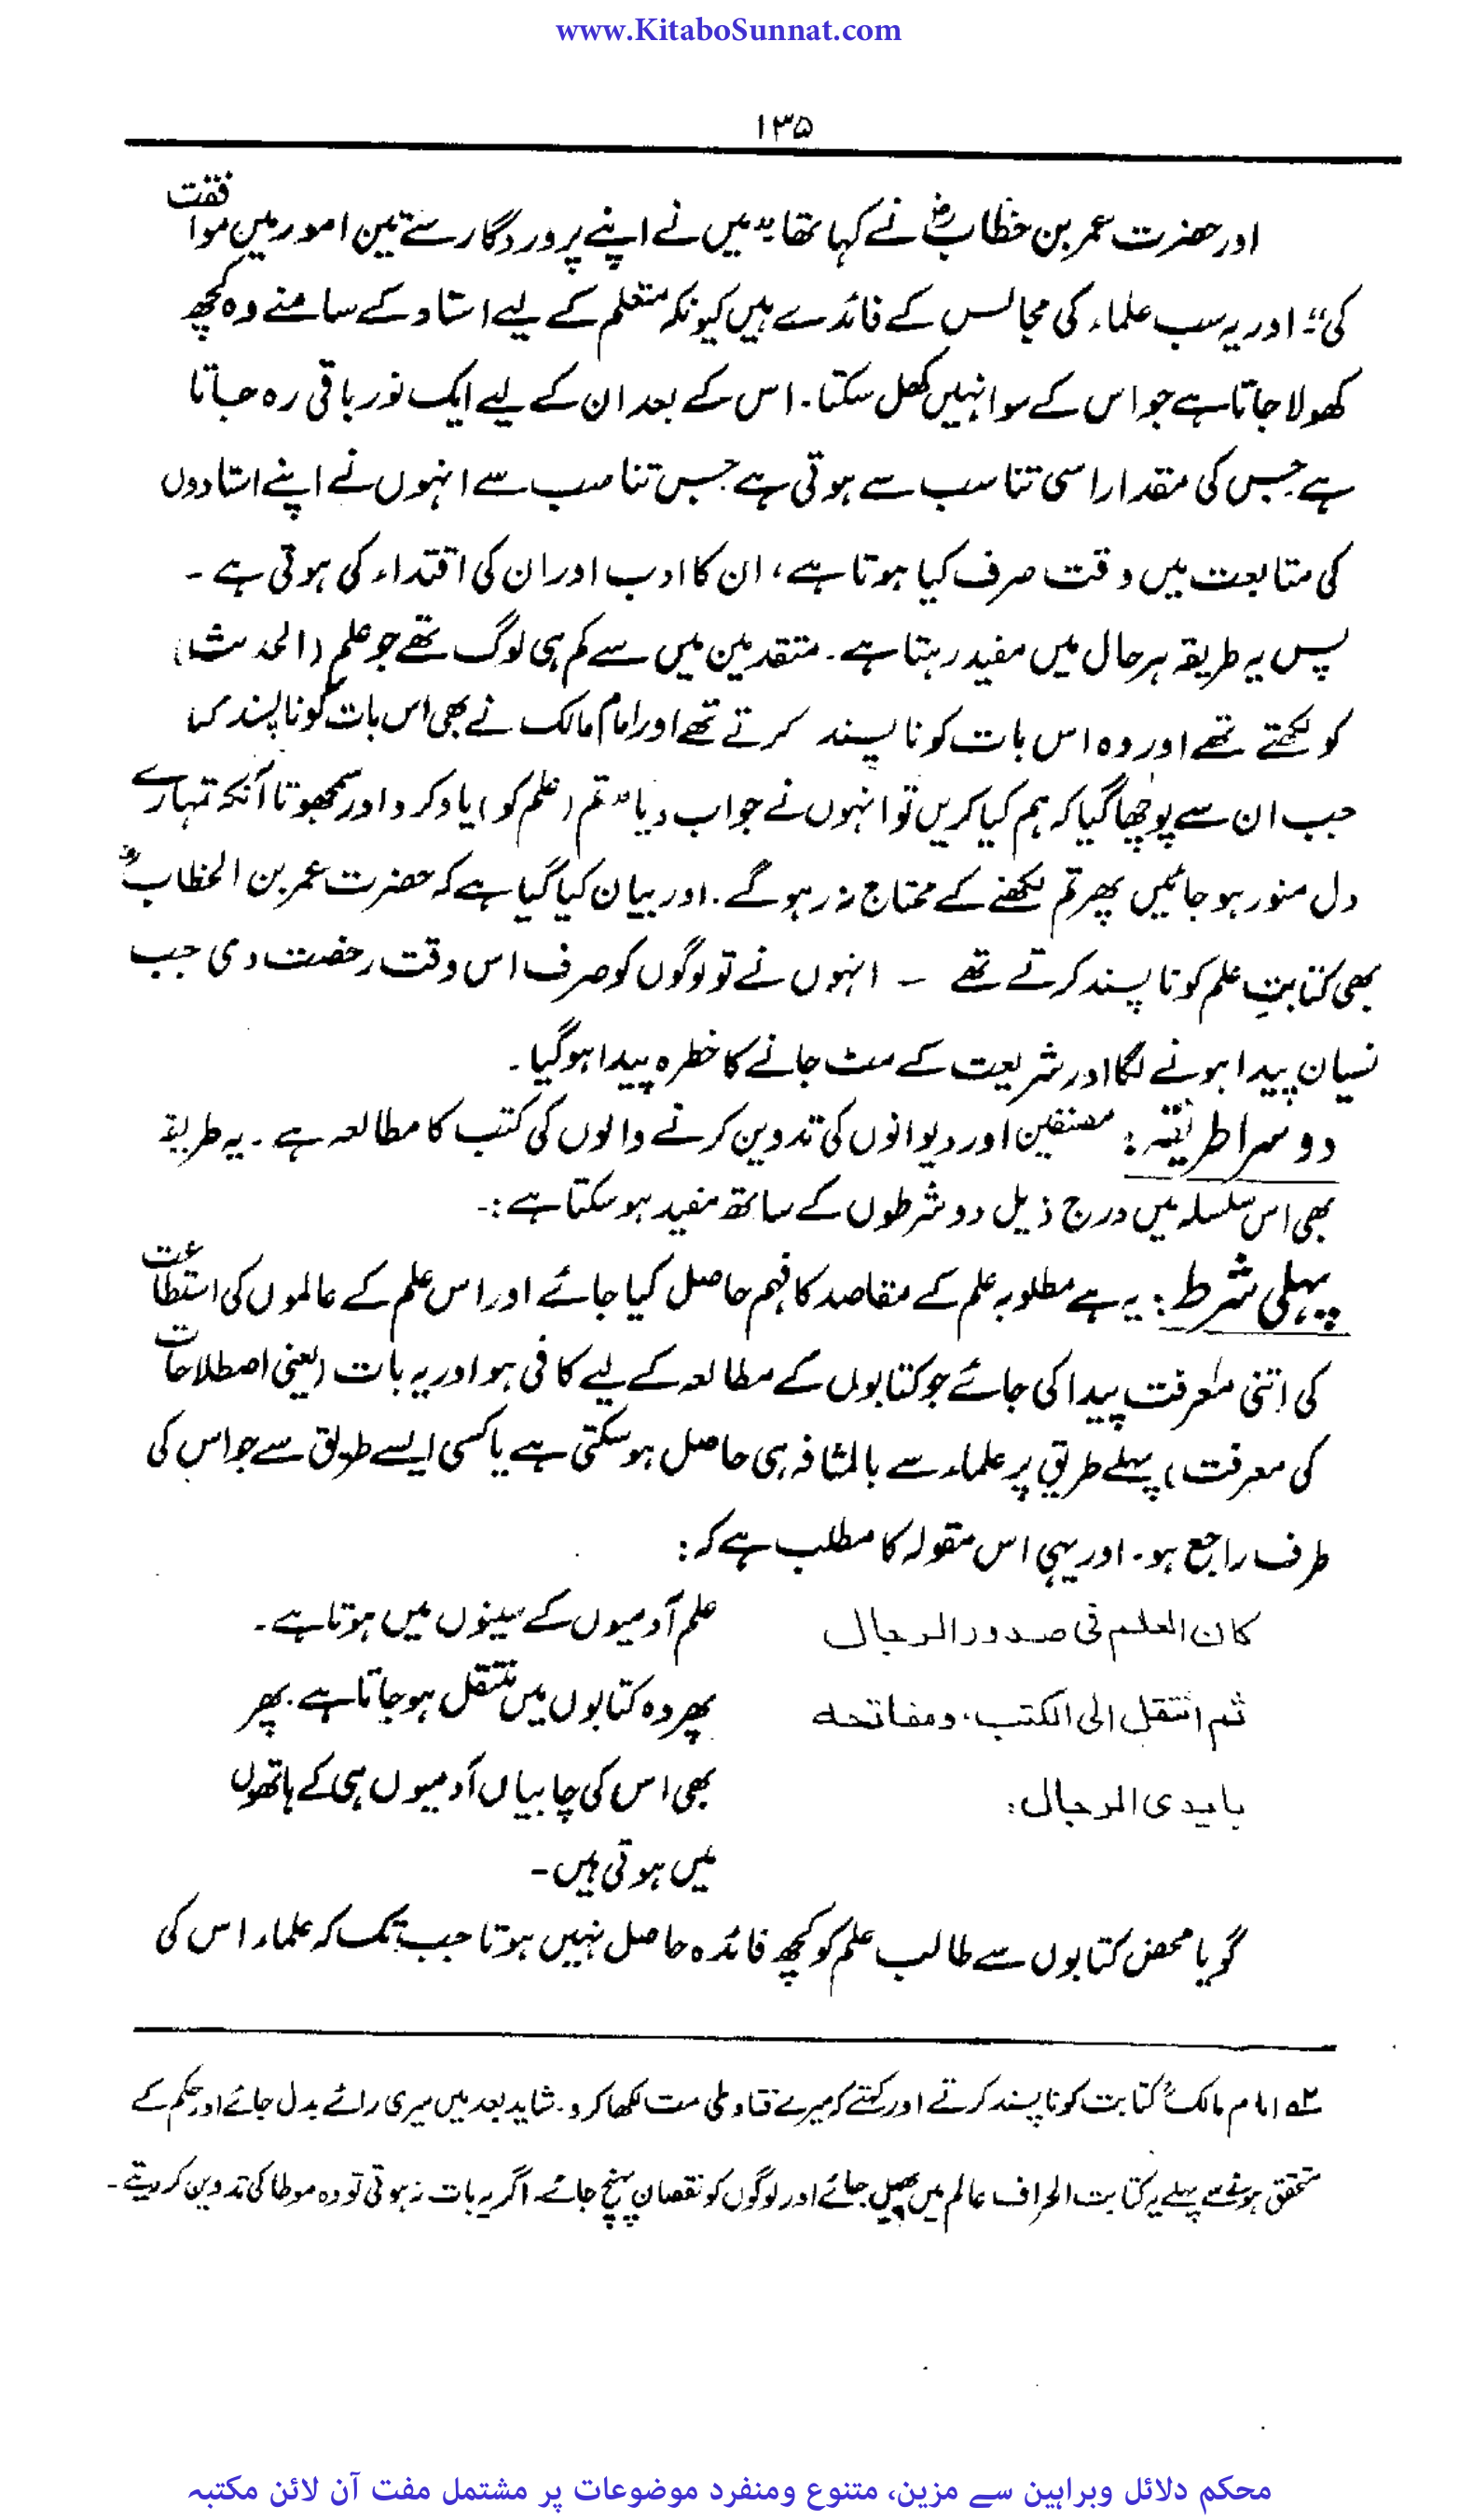 www.KitaboSunnat.com
۱۳۵
اور حضرت عمر بن خطابؓ نے کہا تھا "میں نے اپنے پروردگار سے تین امور میں موافقت
کی"۔ اور یہ سب علماء کی مجالس کے فائدے ہیں کیونکہ متعلم کے لیے استاد کے سامنے وہ کچھ
کھولا جاتا ہے جو اس کے سوا نہیں کھل سکتا۔ اس کے بعد ان کے لیے ایک نور باقی رہ جاتا
ہے جس کی مقدار اسی تناسب سے ہوتی ہے جس تناسب سے انہوں نے اپنے استادوں
کی متابعت میں وقت صرف کیا ہوتا ہے، ان کا ادب اور ان کی اقتداء کی ہوتی ہے ۔
پس یہ طریقہ ہر حال میں مفید رہتا ہے۔ متقدمین میں سے کم ہی لوگ تھے جو علم (الحدیث)
کو لکھتے تھے اور وہ اس بات کو ناپسند کرتے تھے اور امام مالک نے بھی اس بات کو ناپسند کیا
جب ان سے پوچھا گیا کہ ہم کیا کریں تو انہوں نے جواب دیا "تم (علم کو) یاد کرو اور سمجھو تا آنکہ تمہارے
دل منور ہو جائیں پھر تم لکھنے کے محتاج نہ رہو گے۔ اور بیان کیا گیا ہے کہ حضرت عمر بن الخطابؓ
بھی کتابتِ علم کو ناپسند کرتے تھے ۔ انہوں نے تو لوگوں کو صرف اس وقت رخصت دی جب
نسیان پیدا ہونے لگا اور شریعت کے مٹ جانے کا خطرہ پیدا ہو گیا۔
دوسرا طریقہ: مصنفین اور دیوانوں کی تدوین کرنے والوں کی کتب کا مطالعہ ہے۔ یہ طریقہ
بھی اس سلسلہ میں درج ذیل دو شرطوں کے ساتھ مفید ہو سکتا ہے:۔
پہلی شرط: یہ ہے مطلوبہ علم کے مقاصد کا فہم حاصل کیا جائے اور اس علم کے عالموں کی استطاعت
کی اتنی معرفت پیدا کی جائے جو کتابوں کے مطالعہ کے لیے کافی ہو اور یہ بات (یعنی اصطلاحات
کی معرفت) پہلے طریق پر علماء سے بالمشافہ ہی حاصل ہو سکتی ہے یا کسی ایسے طریق سے جو اس کی
طرف راجع ہو۔ اور یہی اس مقولہ کا مطلب ہے کہ:
کان العلم فی صدور الرجال
ثم انتقل الی الکتب، ومفاتحہ
بایدی الرجال:
علم آدمیوں کے سینوں میں ہوتا ہے۔
پھر وہ کتابوں میں منتقل ہو جاتا ہے۔ پھر
بھی اس کی چابیاں آدمیوں ہی کے ہاتھوں
میں ہوتی ہیں۔
گویا محض کتابوں سے طالب علم کو کچھ فائدہ حاصل نہیں ہوتا جب تک کہ علماء اس کی
۲ے امام مالکؒ کتابت کو ناپسند کرتے اور کہتے کہ میرے فتاویٰ مت لکھا کرو۔ شاید بعد میں میری رائے بدل جائے اور حکم کے
متحقق ہونے سے پہلے یہ کتابت اطراف عالم میں پھیل جائے اور لوگوں کو نقصان پہنچ جائے۔ اگر یہ بات نہ ہوتی تو وہ موطا کی تدوین کر دیتے۔
محکم دلائل وبراہین سے مزین، متنوع ومنفرد موضوعات پر مشتمل مفت آن لائن مکتبہ